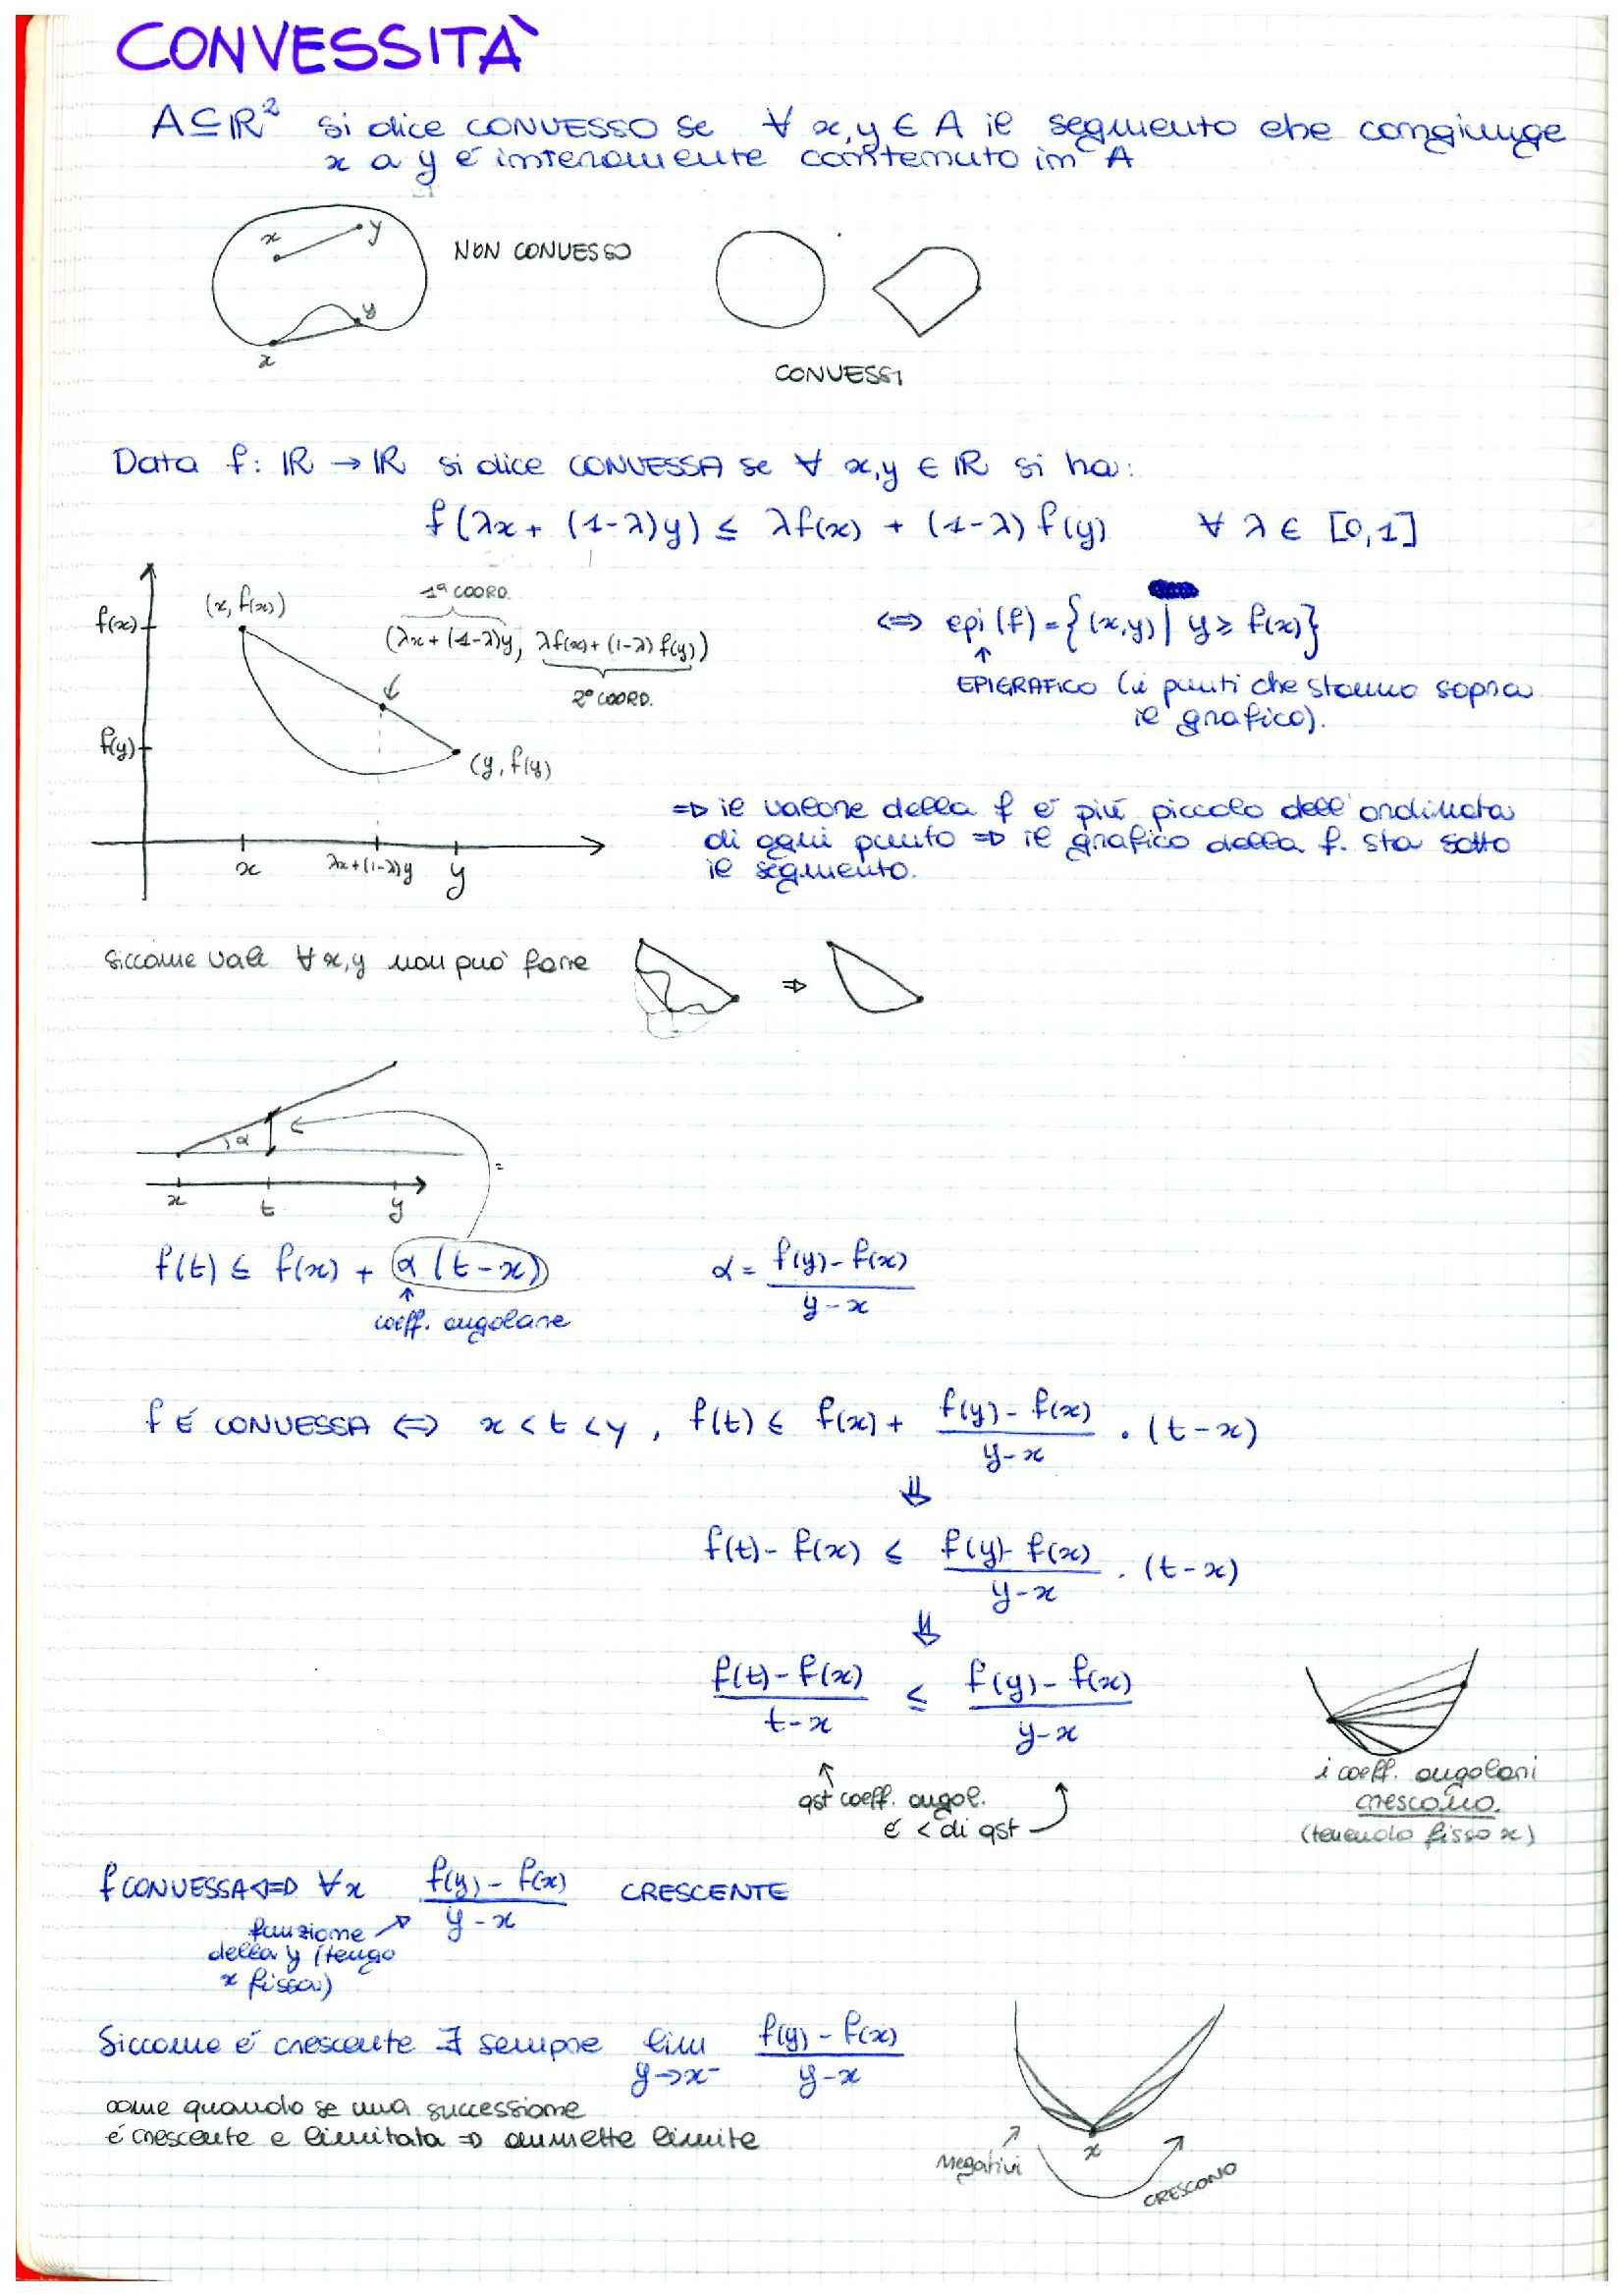 CONVESSITÀ
A⊆ℝ² si dice CONVESSO se ∀ x,y ∈ A il segmento che congiunge
x a y é interamente contenuto in A
x y
NON CONVESSO
y
x
CONVESSI
Data f: ℝ → ℝ si dice CONVESSA se ∀ x,y ∈ ℝ si ha:
f(λx + (1-λ)y) ≤ λf(x) + (1-λ) f(y) ∀ λ ∈ [0,1]
1ª COORD.
f(x) (x, f(x)) (λx + (1-λ)y, λf(x) + (1-λ) f(y))
2ª COORD.
⇔ epi(f) = {(x,y) | y ≥ f(x)}
↑
EPIGRAFICO (i punti che stanno sopra
il grafico).
f(y) (y, f(y)
⇒ il valore della f é piú piccolo dell'ordinata
di ogni punto ⇒ il grafico della f. sta sotto
il segmento.
x λx+(1-λ)y y
Siccome vale ∀ x,y non può fare ⇒
α
=
x t y
f(t) ≤ f(x) + α (t-x) α = f(y) - f(x) / y-x
↑
coeff. angolare
f É CONVESSA ⇔ x < t < y , f(t) ≤ f(x) + f(y) - f(x) / y-x · (t-x)
⇓
f(t) - f(x) ≤ f(y) - f(x) / y-x · (t-x)
⇓
f(t) - f(x) / t-x ≤ f(y) - f(x) / y-x
↑
qst coeff. angol.
é < di qst
i coeff. angolari
crescono.
(tenendo fisso x)
f CONVESSA ⇔ ∀x f(y) - f(x) / y-x CRESCENTE
funzione
della y (tengo
x fissa)
Siccome é crescente ∃ sempre lim y→x⁻ f(y) - f(x) / y-x
come quando se una successione
é crescente e limitata ⇒ ammette limite
x
negativi
CRESCONO